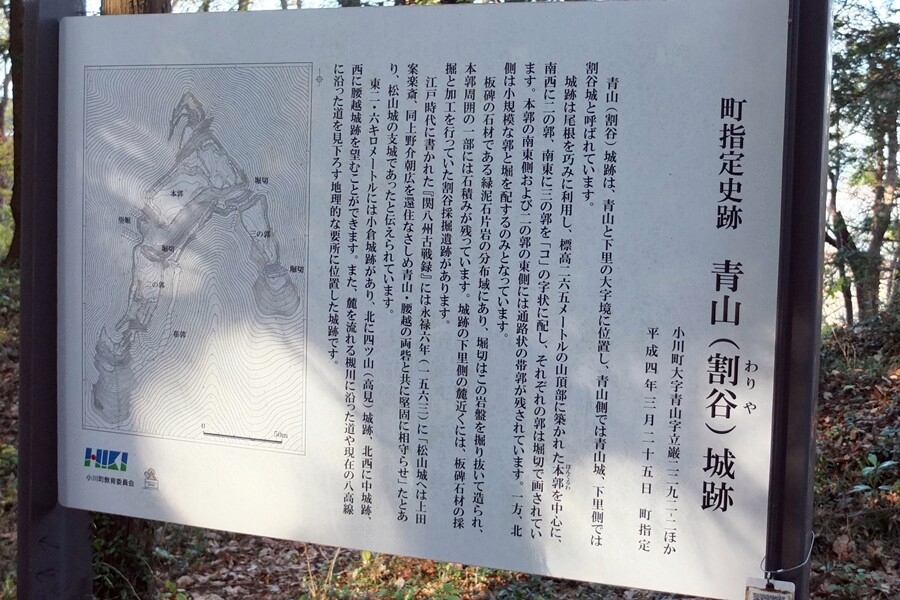 町指定史跡　青山（割谷）城跡
わりや
小川町大字青山字立巌二二九二ー二ほか
平成四年三月二十五日　町指定
青山（割谷）城跡は、青山と下里の大字境に位置し、青山側では青山城、下里側では
割谷城と呼ばれています。
城跡は尾根を巧みに利用し、標高二六五メートルの山頂部に築かれた本郭を中心に、
ほんくるわ
南西に二の郭、南東に三の郭を「コ」の字状に配し、それぞれの郭は堀切で画されてい
ます。本郭の南東側および二の郭の東側には通路状の帯郭が残されています。一方、北
側は小規模な郭と堀を配するのみとなっています。
板碑の石材である緑泥石片岩の分布域にあり、堀切はこの岩盤を掘り抜いて造られ、
本郭周囲の一部には石積みが残っています。城跡の下里側の麓近くには、板碑石材の採
掘と加工を行っていた割谷採掘遺跡があります。
江戸時代に書かれた『関八州古戦録』には永禄六年（一五六三）に「松山城へは上田
案楽斎、同上野介朝広を還住なさしめ青山・腰越の両砦と共に堅固に相守らせ」たとあ
り、松山城の支城であったと伝えられています。
東二・六キロメートルには小倉城跡があり、北に四ツ山（高見）城跡、北西に中城跡、
西に腰越城跡を望むことができます。また、麓を流れる槻川に沿った道や現在の八高線
に沿った道を見下ろす地理的な要所に位置した城跡です。
本郭
堀切
竪堀
堀切
三の郭
堀切
二の郭
0
50m
HIKI
小川町教育委員会